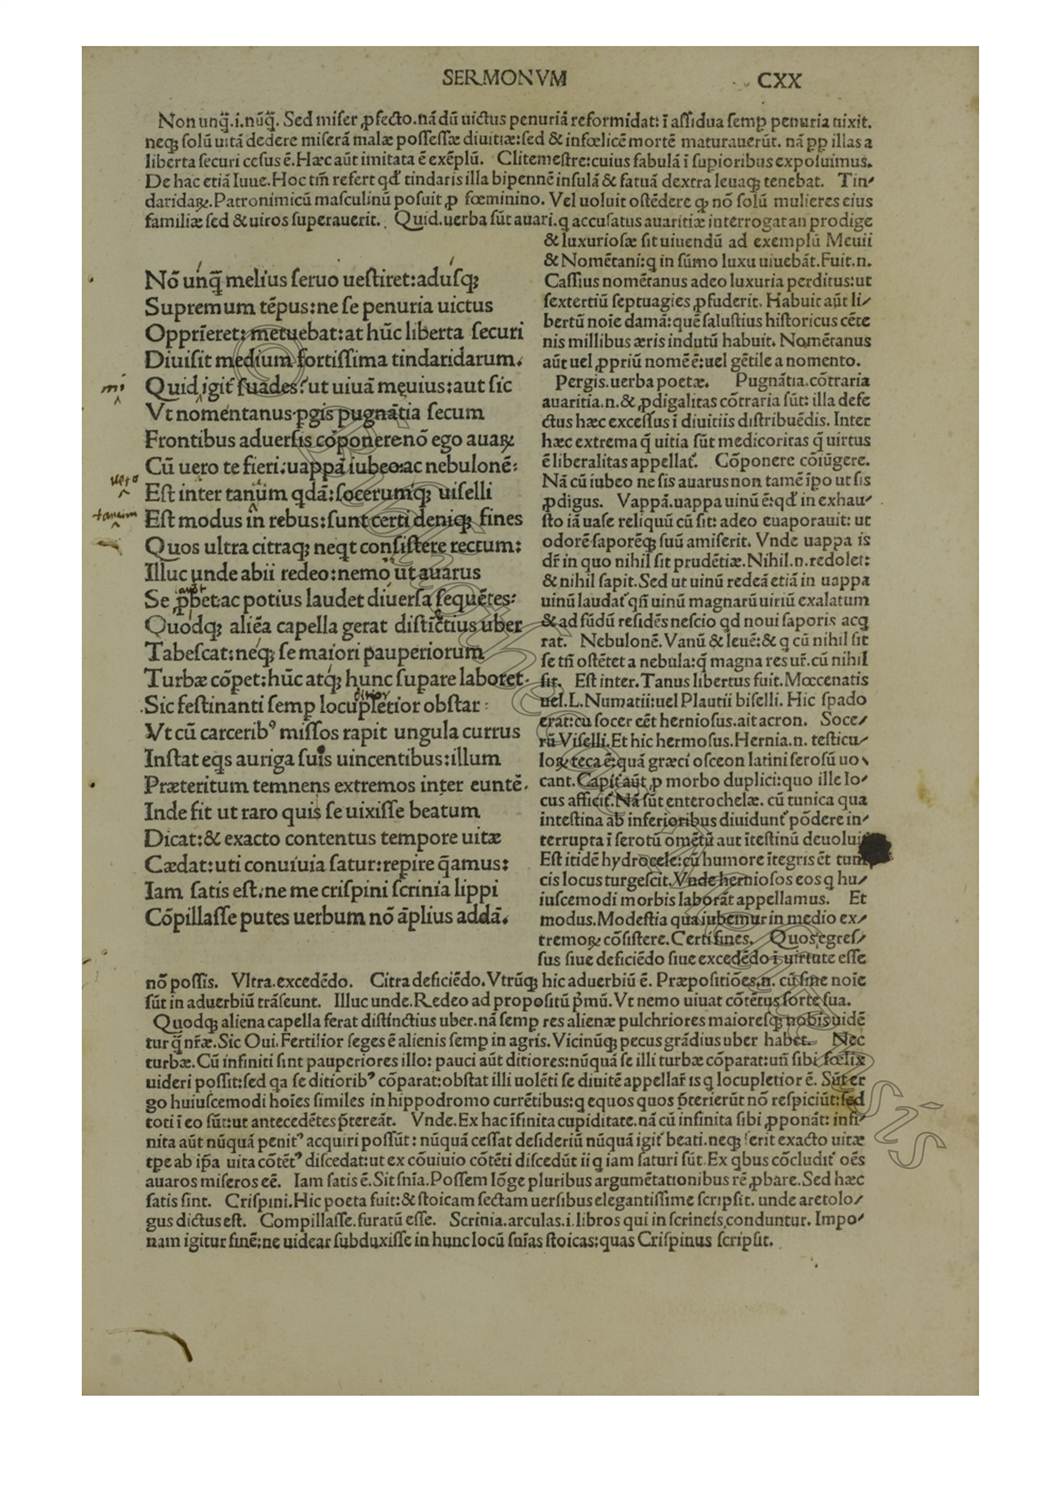 SERMONVM
CXX
Non unq̃.i.nũq̃. Sed miser ꝓfecto.nã dũ uictus penuriã reformidat: ĩ assidua semꝑ penuria uixit.
neqꝫ solũ uitã dedere miserã malæ possessæ diuitiæ:sed & infœlicẽ mortẽ maturauerũt. nã pp illas a
liberta securi cesus ẽ. Hæc aũt imitata ẽ exẽplũ. Clitemestre:cuius fabulã ĩ supioribus exposuimus.
De hac etiã Iuue. Hoc tm̃ refert qđ tindaris illa bipennẽ insulã & fatuã dextra leuaqꝫ tenebat. Tin-
daridaꝝ. Patronimicũ masculinũ posuit ꝓ fœminino. Vel uoluit ostẽdere qꝫ nõ solũ mulieres eius
familiæ sed & uiros superauerit. Quid. uerba sũt auari.q accusatus auaritiæ interrogat an prodige
& luxuriosæ sit uiuendũ ad exemplũ Meuii
& Nomẽtani:q in sũmo luxu uiuebãt. Fuit.n.
Cassius nomẽtanus adeo luxuria perditus:ut
sextertiũ septuagies ꝓfuderit. Habuit aũt li-
bertũ noie damã:quẽ salustius historicus cẽte
nis millibus æris indutũ habuit. Nomẽtanus
aũt uel ꝓpriũ nomẽ ẽ:uel gẽtile a nomento.
Pergis. uerba poetæ. Pugnãtia. cõtraria
auaritia.n.& ꝓdigalitas cõtraria sũt: illa defe
ctus hæc excessus ĩ diuitiis distribuẽdis. Inter
hæc extrema q̃ uitia sũt medicoritas q̃ uirtus
ẽ liberalitas appellat̃. Cõponere cõiũgere.
Nã cũ iubeo ne sis auarus non tamẽ ĩpo ut sis
ꝓdigus. Vappã. uappa uinũ ẽ:qđ in exhau-
sto iã uase reliquũ cũ sit: adeo euaporauit: ut
odorẽ saporẽqꝫ suũ amiserit. Vnde uappa is
dr̃ in quo nihil sit prudẽtiæ. Nihil.n.redolet:
& nihil sapit. Sed ut uinũ redeã etiã in uappa
uinũ laudat̃ qñ uinũ magnarũ uiriũ exalatum
& ad fũdũ residẽs nescio qd noui saporis acq
rat. Nebulonẽ. Vanũ & leuẽ:& q cũ nihil sit
se tñ ostẽtet a nebula:q̃ magna res ur̃.cũ nihil
sit. Est inter. Tanus libertus fuit. Mœcenatis
uel.L. Numatii:uel Plautii biselli. Hic spado
erat:cu socer eẽt herniosus.ait acron. Soce-
rũ Viselli. Et hic hermosus. Hernia.n. testicu-
loꝝ teca ẽ:quã græci osceon latini serosũ uo
cant. Capit̃ aũt ꝓ morbo duplici:quo ille lo-
cus afficit̃. Nã sũt enterochelæ. cũ tunica qua
intestina ab inferioribus diuidunt̃ põdere in-
terrupta ĩ serotũ omẽtũ aut ĩtestinũ deuolui
Est itidẽ hydrocele:cũ humore ĩtegris ẽt tum
cis locus turgescit. Vnde herniosos eos q hu-
iuscemodi morbis laborãt appellamus. Et
modus. Modestia qua iubemur in medio ex-
tremoꝝ cõsistere. Certi fines. Quos egres-
sus siue deficiẽdo siue excedẽdo ĩ uirtute esse
Nõ unq̃ melius seruo uestiret:adusqꝫ
Supremum tẽpus:ne se penuria uictus
Opprĩeret: metuebat:at hũc liberta securi
Diuisit medium fortissima tindaridarum.
Quid igit̃ suades? ut uiuã męuius:aut sic
mi
Vt nomentanus pgis pugnãtia secum
Frontibus aduersis cõponere nõ ego auaꝝ
Cũ uero te fieri:uappã iubeo:ac nebulonẽ:
uero
Est inter tanũm qdã:socerumqꝫ uiselli
tanaim
Est modus in rebus:sunt certi deniqꝫ fines
Quos ultra citraqꝫ neqt consistere rectum:
Illuc unde abii redeo:nemo ut auarus
Se p̃bet:ac potius laudet diuersa sequẽtes:
Quodqꝫ aliẽa capella gerat distĩctius uber
Tabescat:neqꝫ se maiori pauperiorum
Turbæ cõpet:hũc atqꝫ hunc supare laboret.
Sic festinanti semp locupletior obstar:
ditior
Vt cũ carceribꝰ missos rapit ungula currus
Instat eqs auriga suis uincentibus:illum
Præteritum temnens extremos inter euntẽ.
Inde fit ut raro quis se uixisse beatum
Dicat:& exacto contentus tempore uitæ
Cædat:uti conuiuia satur:repire q̃amus:
Iam satis est:ne me crispini scrinia lippi
Cõpillasse putes uerbum nõ ãplius addã.
nõ possis. Vltra.excedẽdo. Citra deficiẽdo. Vtrũqꝫ hic aduerbiũ ẽ. Præpositiões.n. cũ sine noie
sũt in aduerbiũ trãseunt. Illuc unde. Redeo ad propositũ p̃mũ. Vt nemo uiuat cõtẽtus sorte sua.
Quodqꝫ aliena capella ferat distinctius uber. nã semp res alienæ pulchriores maioresqꝫ nobis uidẽ
tur q̃ nr̃æ. Sic Oui. Fertilior seges ẽ alienis semp in agris. Vicinũqꝫ pecus grãdius uber habet. Nec
turbæ. Cũ infiniti sint pauperiores illo: pauci aũt ditiores:nũquã se illi turbæ cõparat:un̄ sibi fœlix
uideri possit:sed qa se ditioribꝰ cõparat:obstat illi uolẽti se diuitẽ appellar̃ is q locupletior ẽ. Sũt er
go huiuscemodi hoĩes similes in hippodromo currẽtibus:q equos quos p̃terierũt nõ respiciũt:sed
toti ĩ eo sũt:ut antecedẽtes p̃tereãt. Vnde. Ex hac ĩfinita cupiditate.nã cũ infinita sibi ꝓponãt: infi-
nita aũt nũquã penitꝰ acquiri possũt: nũquã cessat desideriũ nũquã igit̃ beati.neqꝫ serit exacto uitæ
tpe ab ip̃a uita cõtẽtꝰ discedat:ut ex cõuiuio cõtẽti discedũt ii q iam saturi sũt. Ex qbus cõcludit̃ oẽs
auaros miseros eẽ. Iam satis ẽ. Sit sñia. Possem lõge pluribus argumẽtationibus rẽ ꝓbare. Sed hæc
satis sint. Crispini. Hic poeta fuit:& stoicam sectam uersibus elegantissime scripsit. unde aretolo-
gus dictus est. Compillasse. furatũ esse. Scrinia.arculas.i.libros qui in scrineis conduntur. Impo-
nam igitur finẽ:ne uidear subduxisse in hunc locũ sñias stoicas:quas Crispinus scripsit.